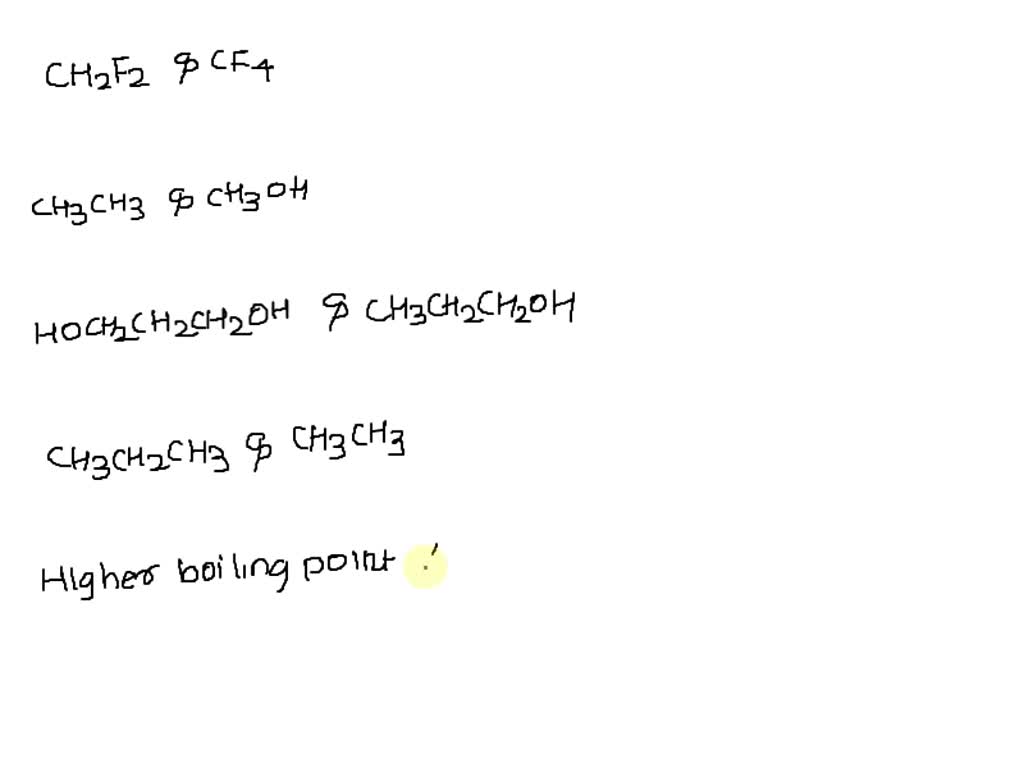 CH2F2 & CF4
CH3CH3 & CH3OH
HOCH2CH2CH2OH & CH3CH2CH2OH
CH3CH2CH3 & CH3CH3
Higher boiling point